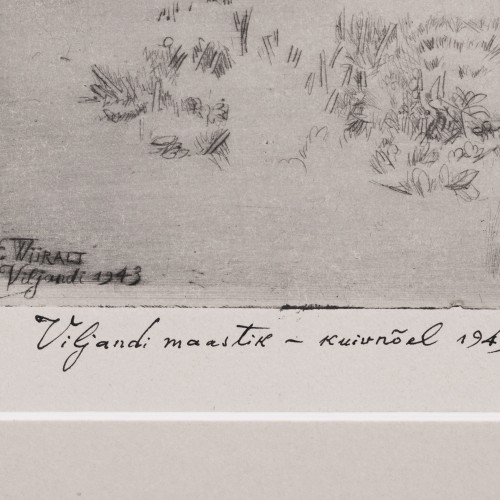 E WIIRALT
Viljandi 1943
Viljandi maastik – kuivnõel 194